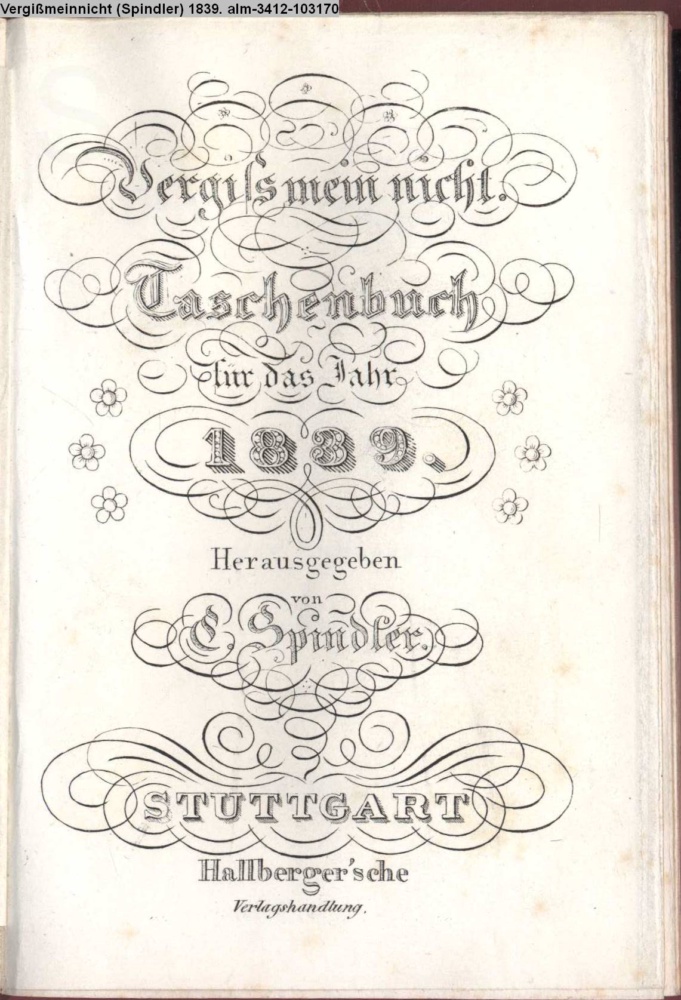 Vergißmeinnicht (Spindler) 1839. alm-3412-103170
Vergiſs mein nicht.
Taschenbuch
für das Jahr
1839.
Herausgegeben
von
C. Spindler.
STUTTGART
Hallberger'sche
Verlagshandlung.